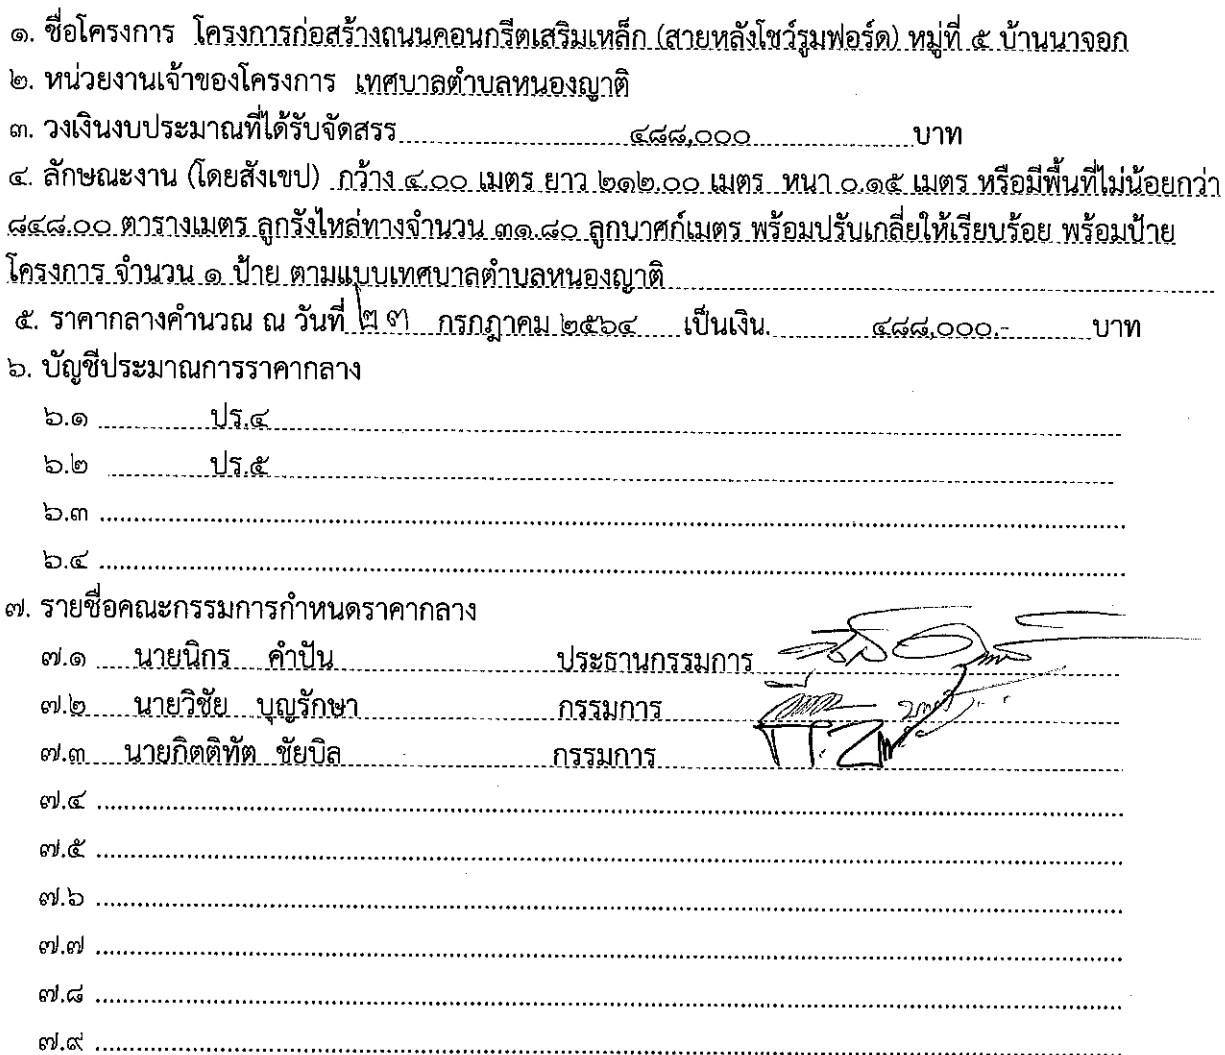 ๑. ชื่อโครงการ โครงการก่อสร้างถนนคอนกรีตเสริมเหล็ก (สายหลังโชว์รูมฟอร์ด) หมู่ที่ ๕ บ้านนาจอก
๒. หน่วยงานเจ้าของโครงการ เทศบาลตำบลหนองญาติ
๓. วงเงินงบประมาณที่ได้รับจัดสรร ๔๘๘,๐๐๐ บาท
๔. ลักษณะงาน (โดยสังเขป) กว้าง ๔.๐๐ เมตร ยาว ๒๑๒.๐๐ เมตร หนา ๐.๑๕ เมตร หรือมีพื้นที่ไม่น้อยกว่า
๘๔๘.๐๐ ตารางเมตร ลูกรังไหล่ทางจำนวน ๓๑.๘๐ ลูกบาศก์เมตร พร้อมปรับเกลี่ยให้เรียบร้อย พร้อมป้าย
โครงการ จำนวน ๑ ป้าย ตามแบบเทศบาลตำบลหนองญาติ
๕. ราคากลางคำนวณ ณ วันที่ กรกฎาคม ๒๕๖๔ เป็นเงิน. ๔๘๘,๐๐๐.- บาท
๖. บัญชีประมาณการราคากลาง
๖.๑ ปร.๔
๖.๒ ปร.๕
๖.๓
๖.๔
๗. รายชื่อคณะกรรมการกำหนดราคากลาง
๗.๑ นายนิกร คำปัน ประธานกรรมการ
๗.๒ นายวิชัย บุญรักษา กรรมการ
๗.๓ นายกิตติทัต ชัยบิล กรรมการ
๗.๔
๗.๕
๗.๖
๗.๗
๗.๘
๗.๙